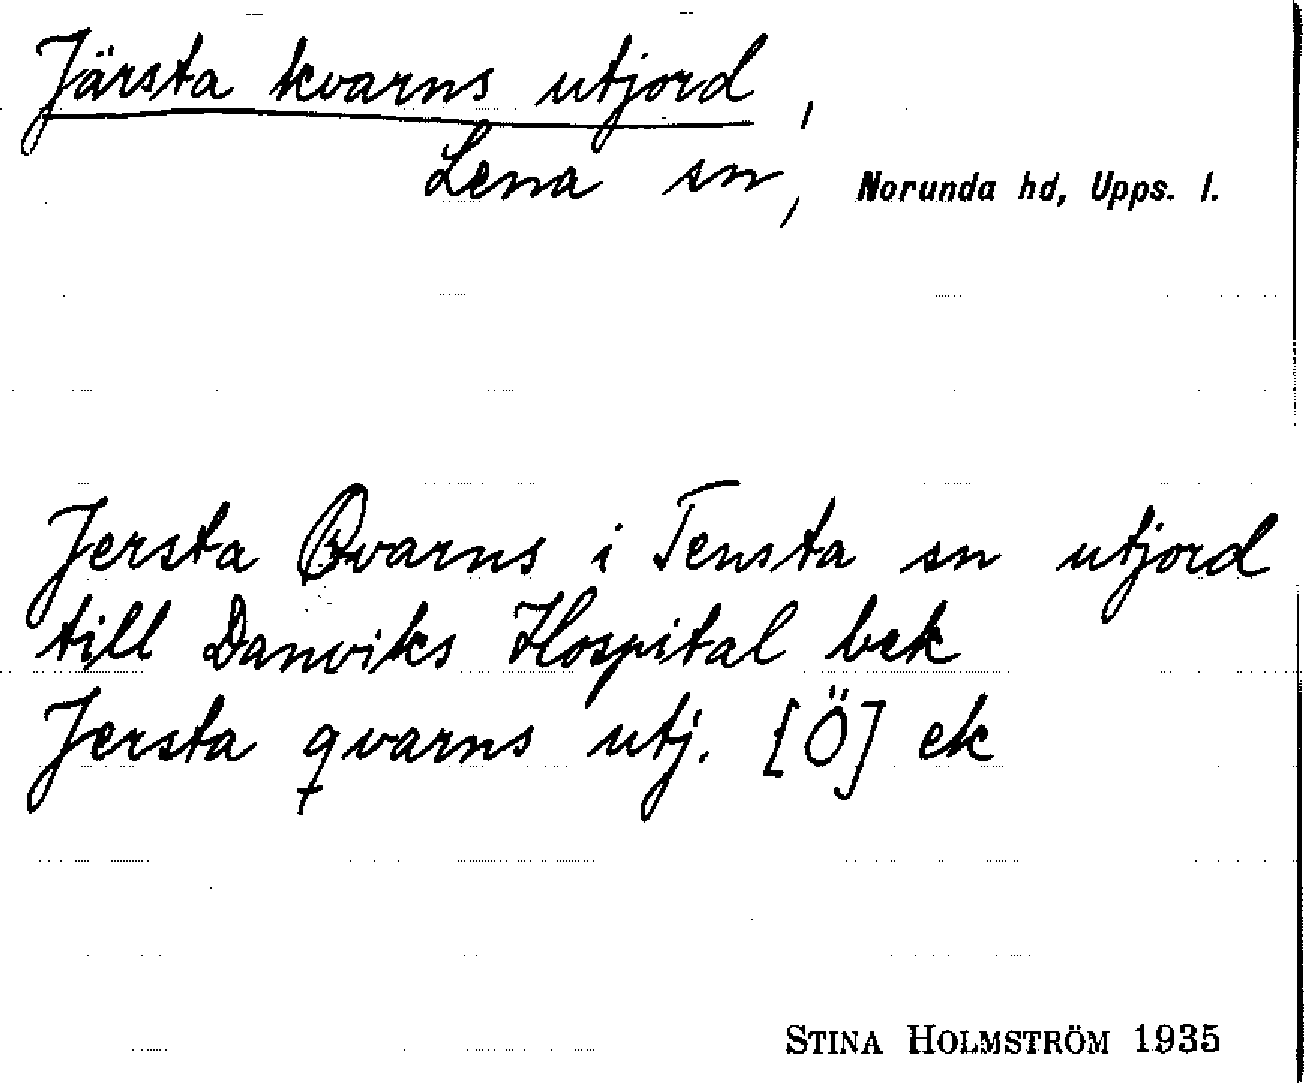 Järsta kvarns utjord,
Lena sn, Norunda hd, Upps. l.
Jersta Qvarns i Tensta sn utjord
till Danviks Hospital bek
Jersta qvarns utj. [Ö] ek
STINA HOLMSTRÖM 1935